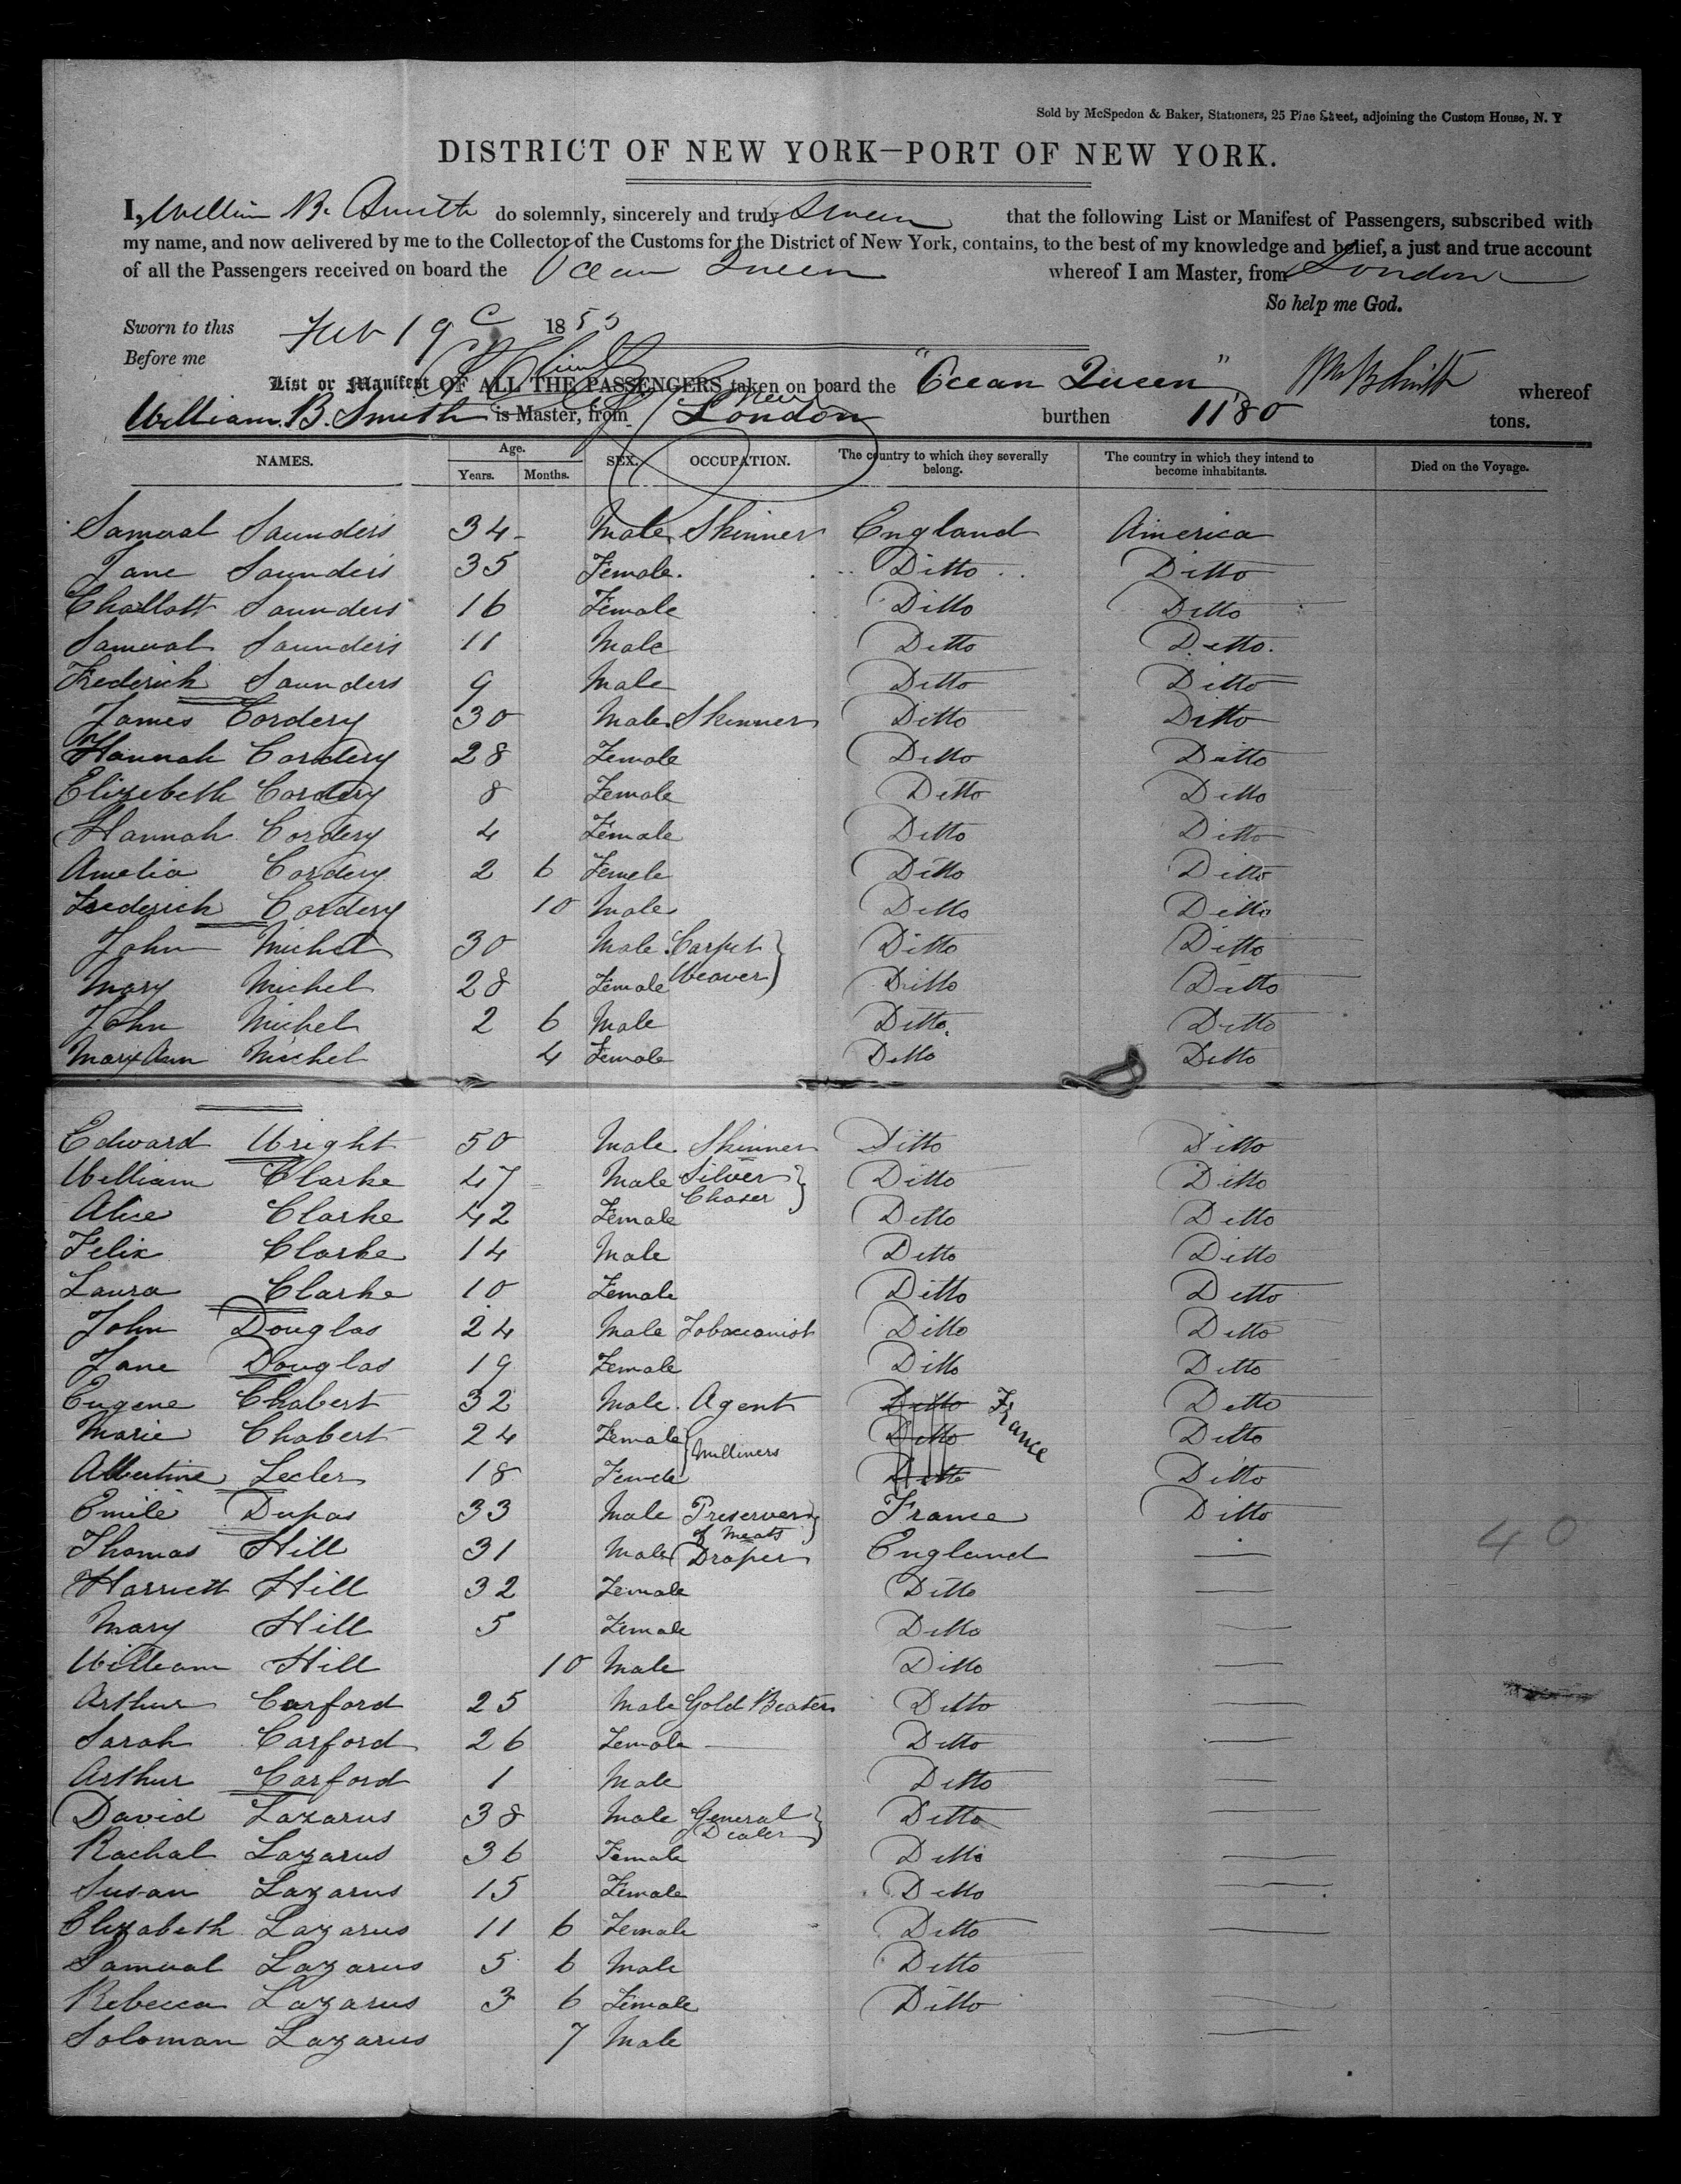 Sold by McSpedon & Baker, Stationers, 25 Pine Street, adjoining the Custom House, N. Y
DISTRICT OF NEW YORK—PORT OF NEW YORK.
I, William B. Smith do solemnly, sincerely and truly Swear that the following List or Manifest of Passengers, subscribed with
my name, and now delivered by me to the Collector of the Customs for the District of New York, contains, to the best of my knowledge and belief, a just and true account
of all the Passengers received on board the Ocean Queen whereof I am Master, from London
So help me God.
Sworn to this Feb 19 185
Before me
List or Manifest OF ALL THE PASSENGERS taken on board the "Ocean Queen" Wm B Smith whereof
William. B. Smith is Master, from London burthen 1180 tons.
NAMES. Age. Years. Months. SEX. OCCUPATION. The country to which they severally belong. The country in which they intend to become inhabitants. Died on the Voyage.
Samual Saunders 34 Male Skinner England America
Jane Saunders 35 Female Ditto Ditto
Challott Saunders 16 Female Ditto Ditto
Samual Saunders 11 Male Ditto Ditto
Frederick Saunders 9 Male Ditto Ditto
James Cordery 30 Male Skinner Ditto Ditto
Hannah Cordery 28 Female Ditto Ditto
Elizebeth Cordery 8 Female Ditto Ditto
Hannah Cordery 4 Female Ditto Ditto
Amelia Cordery 2 6 Female Ditto Ditto
Frederick Cordery 10 Male Ditto Ditto
John Michel 30 Male Carpet Ditto Ditto
Mary Michel 28 Female Weaver Ditto Ditto
John Michel 2 6 Male Ditto Ditto
Mary Ann Michel 4 Female Ditto Ditto
Edward Wright 50 Male Skinner Ditto Ditto
William Clarke 47 Male Silver Chaser Ditto Ditto
Alice Clarke 42 Female Ditto Ditto
Felix Clarke 14 Male Ditto Ditto
Laura Clarke 10 Female Ditto Ditto
John Douglas 24 Male Tobacconist Ditto Ditto
Jane Douglas 19 Female Ditto Ditto
Eugene Chabert 32 Male Agent Ditto France Ditto
Marie Chabert 24 Female Milliners Ditto Ditto
Albertine Lecler 18 Female Ditto Ditto
Emile Dupas 33 Male Preserver of Meats France Ditto
Thomas Hill 31 Male Draper England
Harriett Hill 32 Female Ditto
Mary Hill 5 Female Ditto
William Hill 10 Male Ditto
Arthur Carford 25 Male Gold Beater Ditto
Sarah Carford 26 Female Ditto
Arthur Carford 1 Male Ditto
David Lazarus 38 Male General Dealer Ditto
Rachal Lazarus 36 Female Ditto
Susan Lazarus 15 Female Ditto
Elizabeth Lazarus 11 6 Female Ditto
Samual Lazarus 5 6 Male Ditto
Rebecca Lazarus 3 6 Female Ditto
Soloman Lazarus 7 Male
40